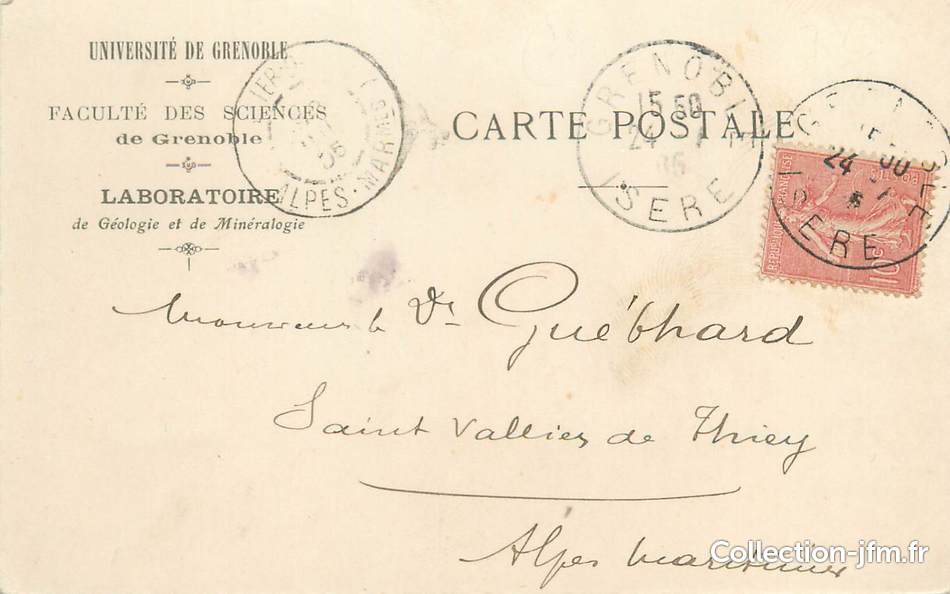 UNIVERSITÉ DE GRENOBLE
FACULTÉ DES SCIENCES
de Grenoble
LABORATOIRE
de Géologie et de Minéralogie
ALPES-MARMES
CARTE POSTALE
GRENOBLE
15 50
24
ISERE
24
ISERE
10c
Monsieur le Dr Guébhard
Saint Vallier de Thiey
Alpes Maritimes
Collection-jfm.fr